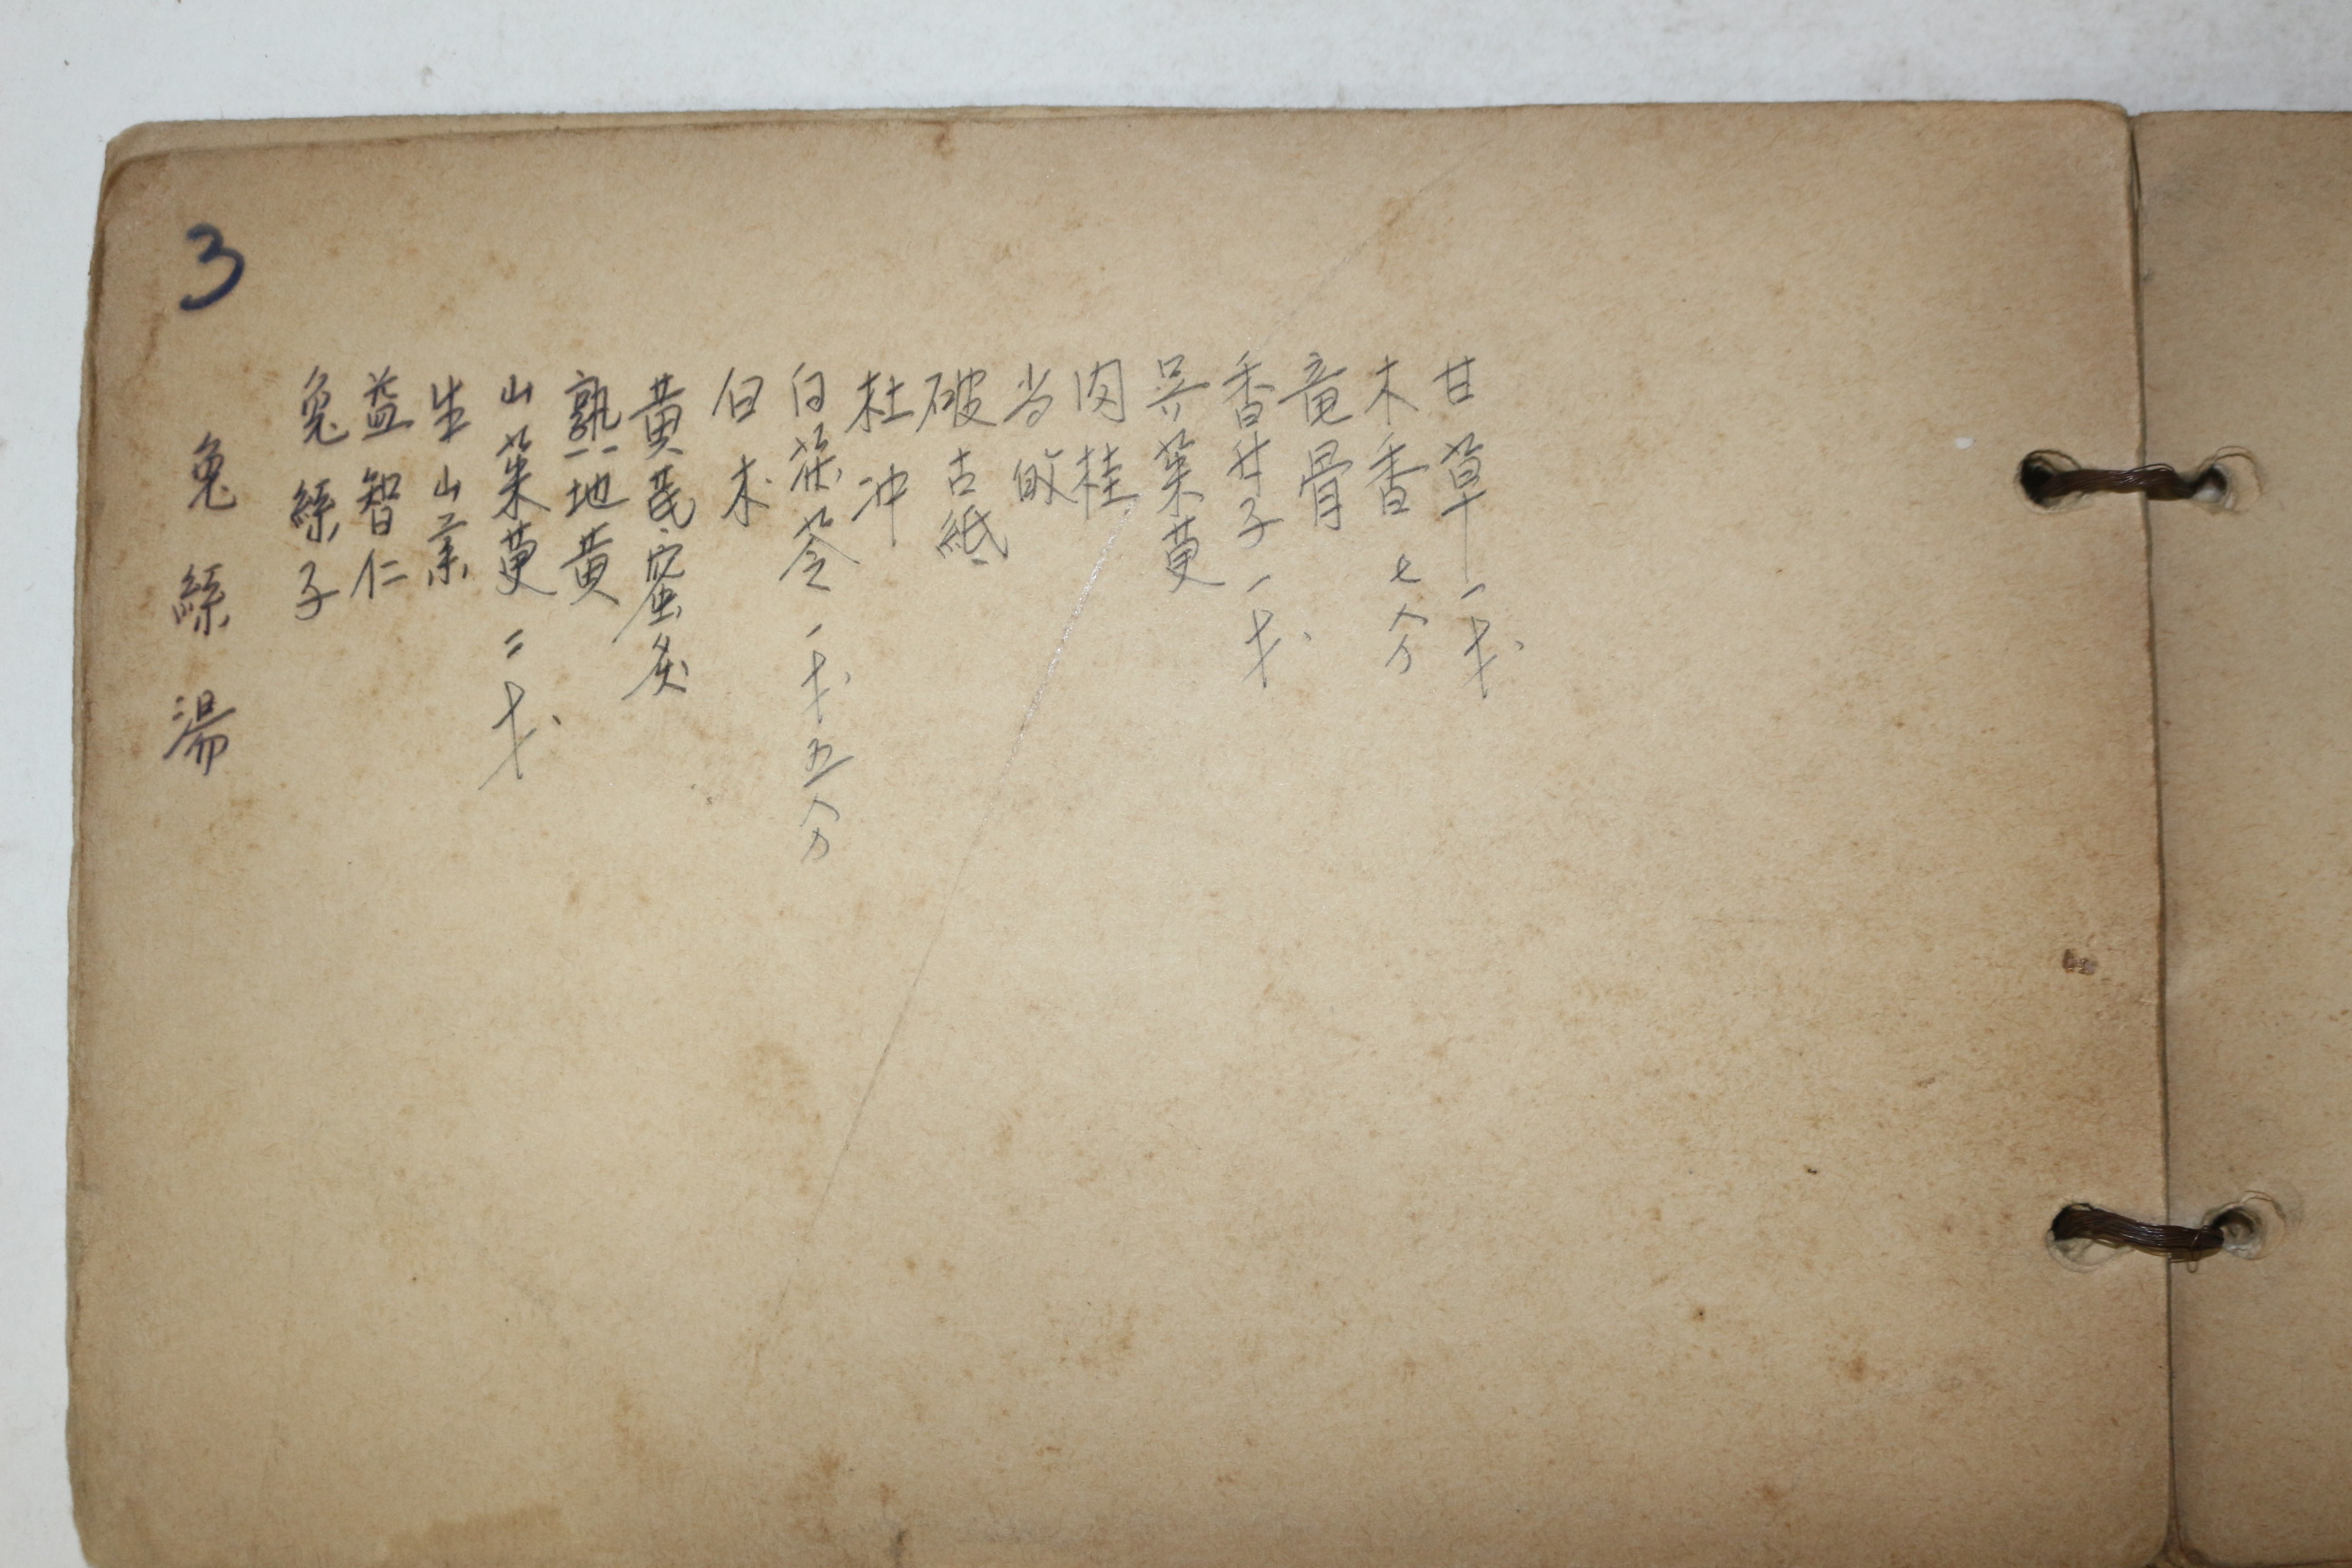 3
兔絲湯
兔絲子
益智仁
生山茱
山茱萸 二戔
熟地黄
黄芪 蜜炙
白朮
白茯苓 一戔五分
杜冲
破古紙
当皈
肉桂
吴茱萸
香附子 一戔
竜骨
木香 七分
甘草 一戔